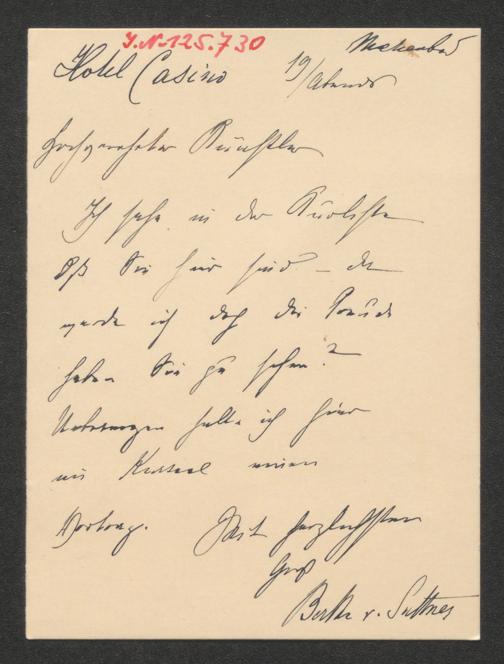 J.N. 125.730
Hotel Casino 19/ Abends
Hochverehrter Künstler
Ich sehe in der Kurliste
daß Sie hier sind – da
werde ich doch die Freude
haben Sie zu sehen?
Uebermorgen halte ich hier
im Kursaal einen
Vortrag. Mit herzlichstem
Gruß
Bertha v. Suttner